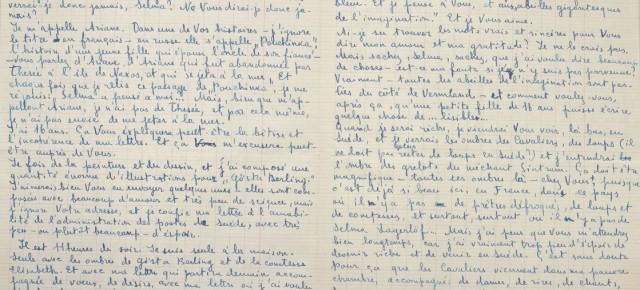 verrai-je donc jamais, Selma? Vo Vous dirai-je donc ja-
mais?
Je m'appelle Ariane. Dans une de Vos histoires - j'ignore
le titre en français - en russe elle s'appelle "
l'histoire d'une jeune fille qui s'pour l'met des fian-
- vous parlez d'Ariane, d'Ariane qui fut abandonnée par
Thesée à l'île de Naxos, et qui se jeta à la mer. Et
chaque fois que je relis ce passage, je me
dis: Selma a pensé à moi. Mais, bien que m'ap-
pellant Ariane, je n'ai pas de Thesée, et par cela même,
je n'ai pas envie de me jeter à la mer.
J'ai 16 ans. Ça Vous expliquera peut-être la bêtise et
l'incohérence de ma lettre. Et ça m'excusera peut-
être auprès de Vous.
Je fais de la peinture et du dessin, et j'ai composé une
quantité énorme d'illustrations pour "Gösta Berling."
J'aimerais bien Vous en envoyer quelques unes: elles sont com-
posées avec beaucoup d'amour et très peu de science, mais
j'ignore Votre adresse, et je confie ma lettre à l'amabi-
lité de l'administration des postes de Suède, avec très
peu - ou plutôt beaucoup - d'espoir.
Il est 11 heures de soir. Je suis seule à la maison -
seule avec les ombres de Gösta Berling et de la comtesse
Elisabeth. Et avec ma lettre qui partira demain accom-
pagnée de voeux, de désirs, avec ma lettre où j'ai voulu
bleue. Et je pense à Vous, et aux abeilles gigantesques
de l'imagination." Et je Vous aime.
Ai-je su trouver les mots vrais et sincères pour Vous
dire mon amour et ma gratitude? Je ne le crois pas.
Mais sachez, Selma, sachez, que j'ai voulu dire beaucoup
de choses - est-ce ma faute, si je n'y suis pas parvenue?
Vraiment - toutes les abeilles de l'imagination sont par-
ties du côté de Vermland - et comment voulez-vous,
après ça, qu'une petite fille de 16 ans puisse écrire
quelque chose de... lisible...
Quand je serai riche, je viendrai Vous voir, là bas, en
Suède, et je verrai les ombres des Cavaliers, des loups (il
ne doit pas rester de loups en Suède?) et j'entendrai
l'ombre des grelots du méchant Sintram. Ça doit être
magnifique - toutes ces ombres là - chez Vous, puisque
c'est déjà si beau ici, en France, dans un pays
où il n'y a pas de prêtres défroqué, de loups et
de comtesses, et surtout, surtout où il n'y a pas de
Selma Lagerlöf. Mais j'ai peur que Vous m'attendrez
bien longtemps, car j'ai vraiment trop peu d'espoir de
devenir riche et de venir en Suède. C'est sans doute
pour ça que les Cavaliers viennent dans ma pauvre
chambre, accompagnés de dames, de rires, de chants,